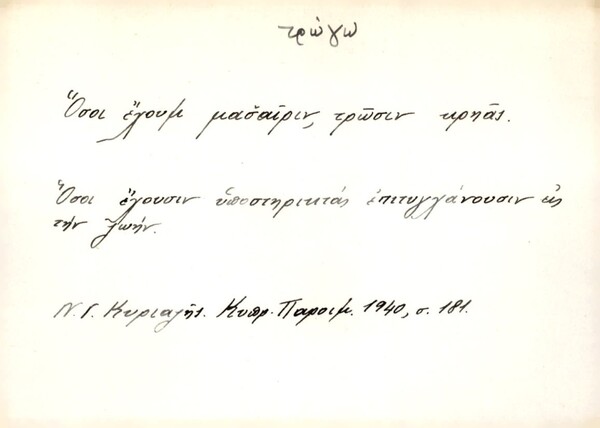 τρώγω
Ὅσοι ἔχουμ μασ̌αῖριν, τρῶσιν κρηᾶς.
Ὅσοι ἔχουσιν ὑποστηρικτάς ἐπιτυγχάνουσιν εἰς
τήν ζωήν.
Ν. Γ. Κυριαζῆς. Κυπρ. Παροιμ. 1940, σ. 181.